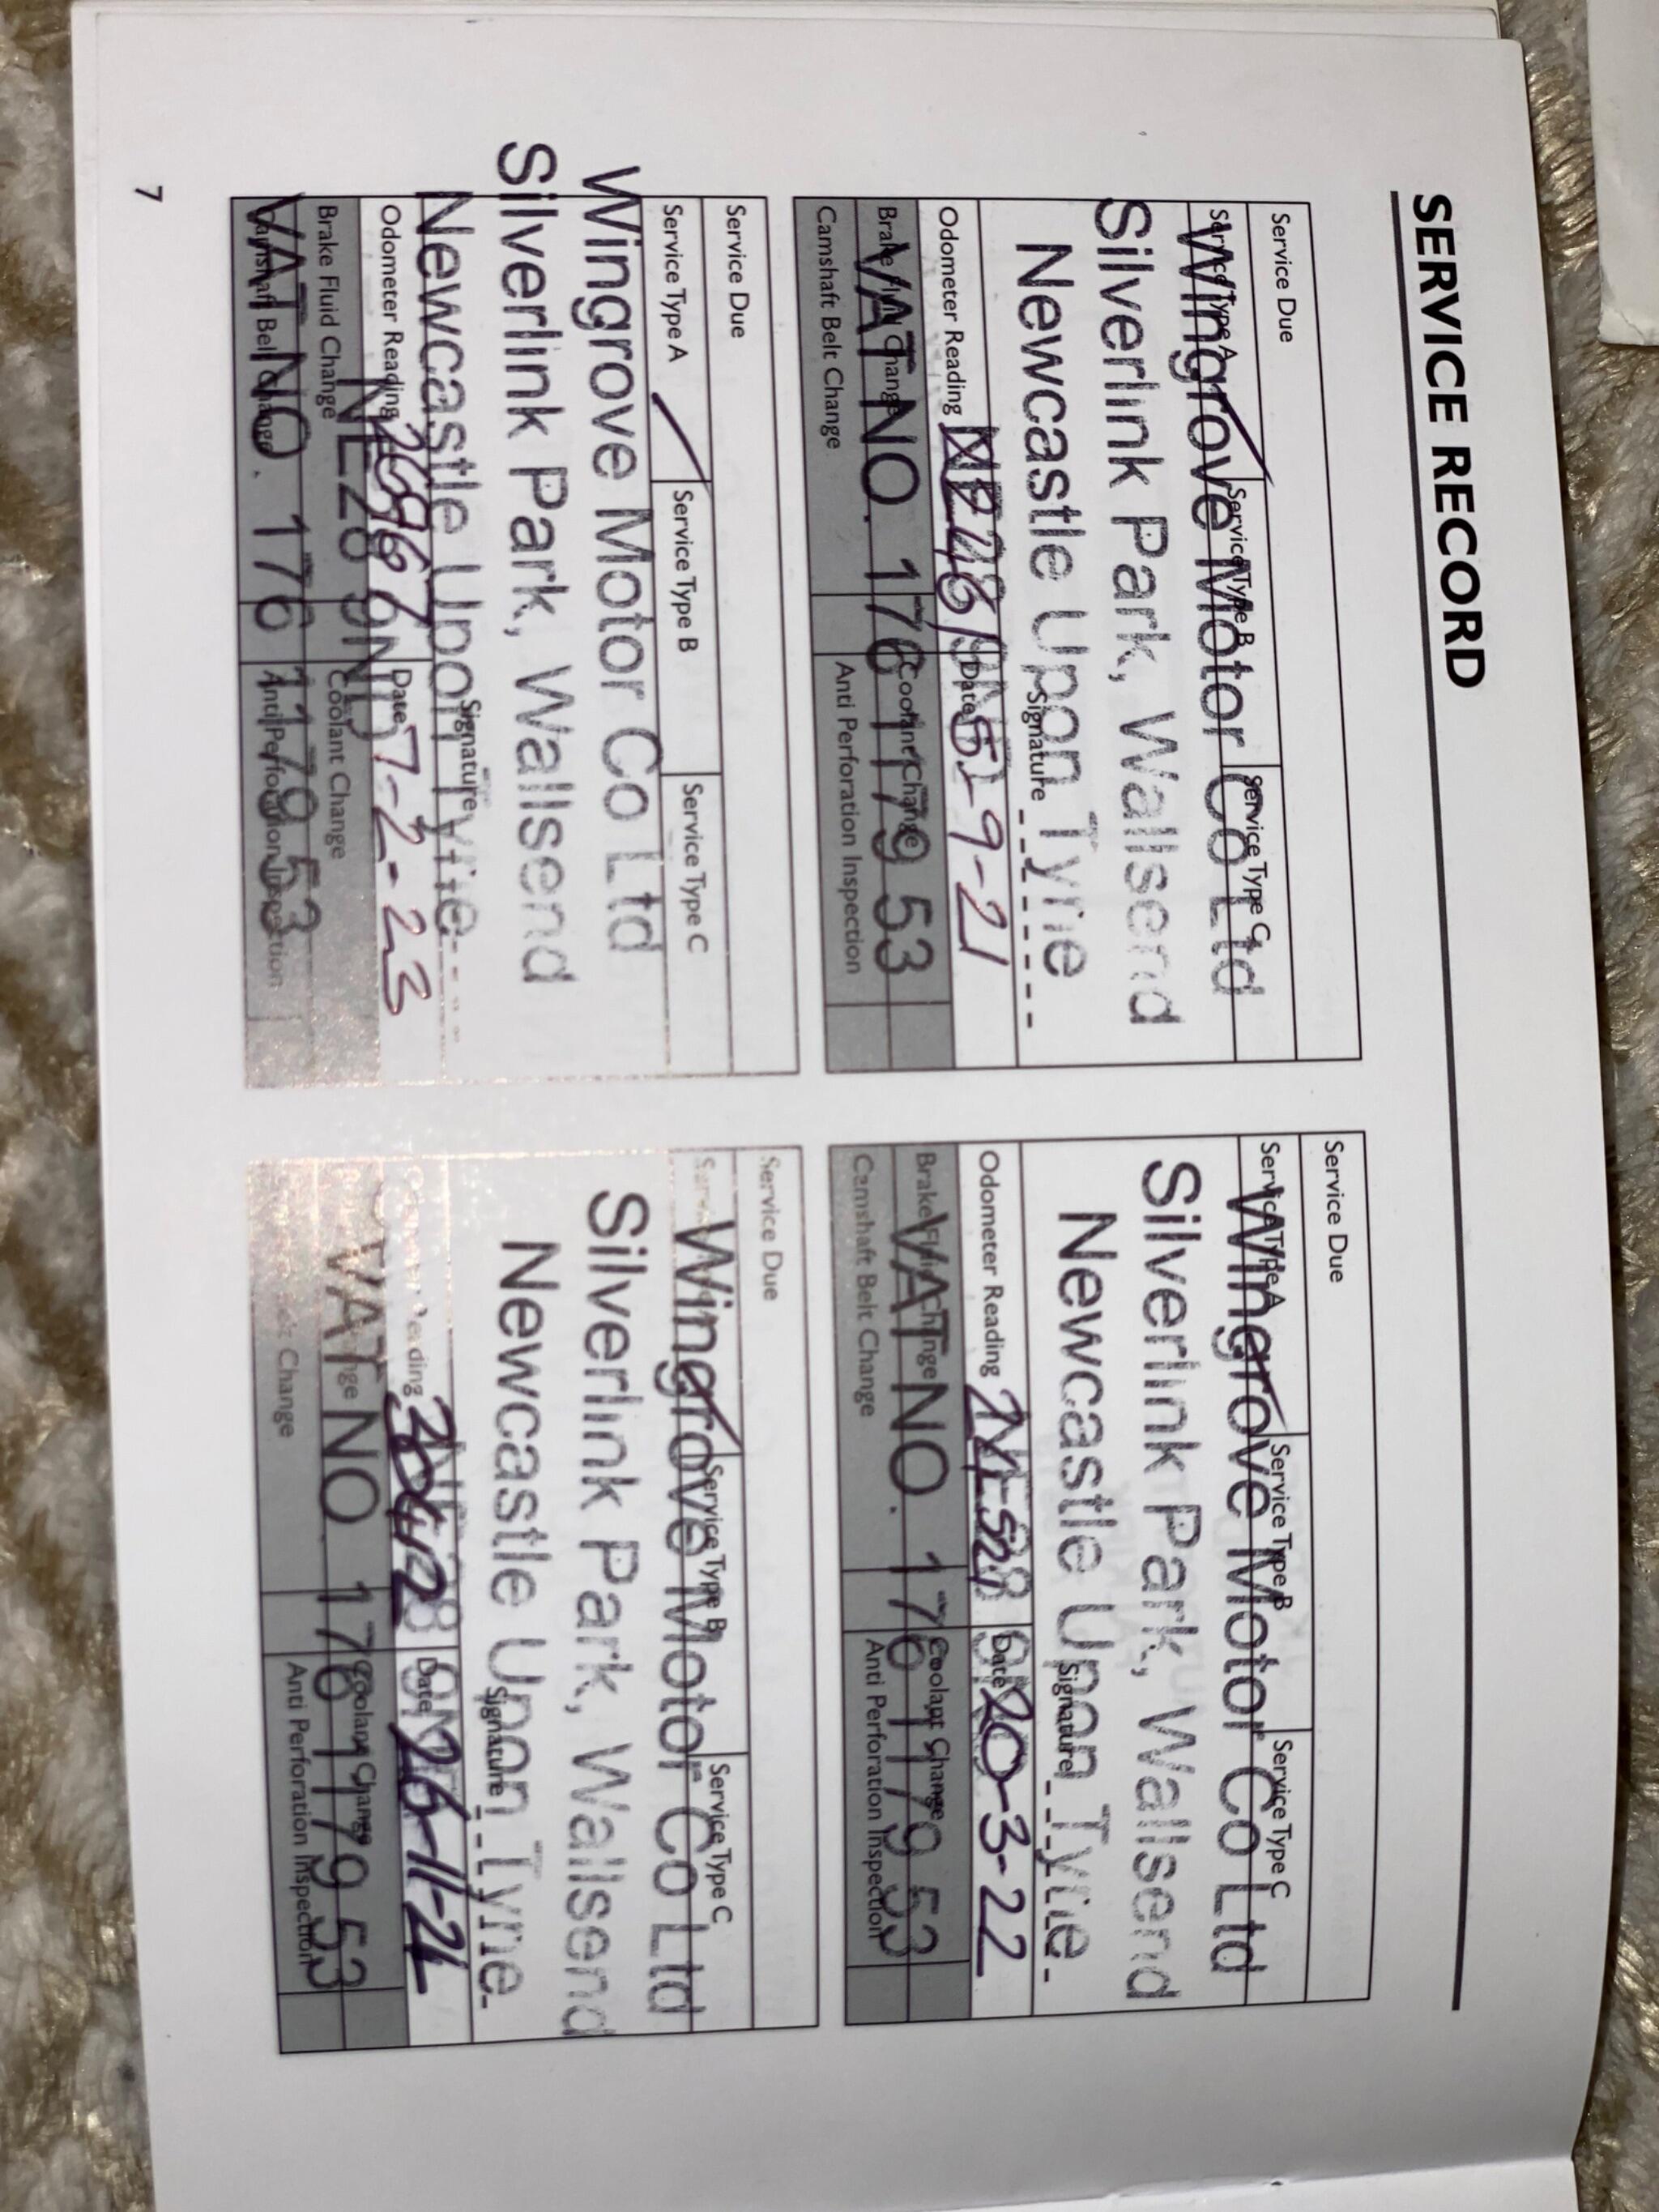 SERVICE RECORD
Service Due
Service Type A Service Type B Service Type C
Wingrove Motor Co Ltd
Silverlink Park, Wallsend
Newcastle Upon Tyne
Signature
Odometer Reading Date 5-9-21
Brake Fluid Change Coolant Change
VAT NO. 176 1179 53
Camshaft Belt Change Anti Perforation Inspection
Service Due
Service Type A Service Type B Service Type C
Wingrove Motor Co Ltd
Silverlink Park, Wallsend
Newcastle Upon Tyne
Signature
Odometer Reading Date 20-3-22
Brake Fluid Change Coolant Change
VAT NO. 176 1179 53
Camshaft Belt Change Anti Perforation Inspection
Service Due
Service Type A Service Type B Service Type C
Wingrove Motor Co Ltd
Silverlink Park, Wallsend
Newcastle Upon Tyne
Signature
Odometer Reading 26967 Date 7-2-23
NE28 9ND
Brake Fluid Change Coolant Change
VAT NO. 176 1179 53
Camshaft Belt Change Anti Perforation Inspection
Service Due
Service Type B Service Type C
Wingrove Motor Co Ltd
Silverlink Park, Wallsend
Newcastle Upon Tyne
Signature
Odometer Reading 30428 Date 26-11-24
Coolant Change
VAT NO. 176 1179 53
Change Anti Perforation Inspection
7